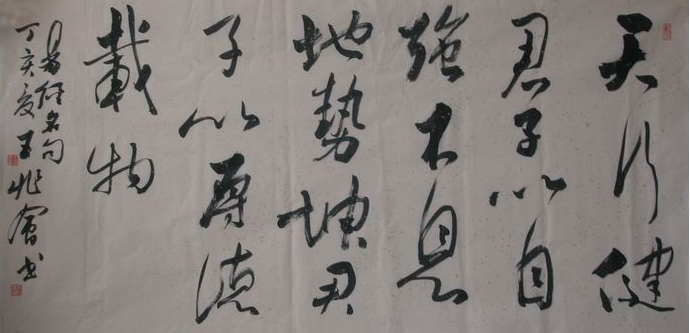 天行健
君子以自
強不息
地勢坤君
子以厚德
載物
易經名句
丁亥夏王兆會書